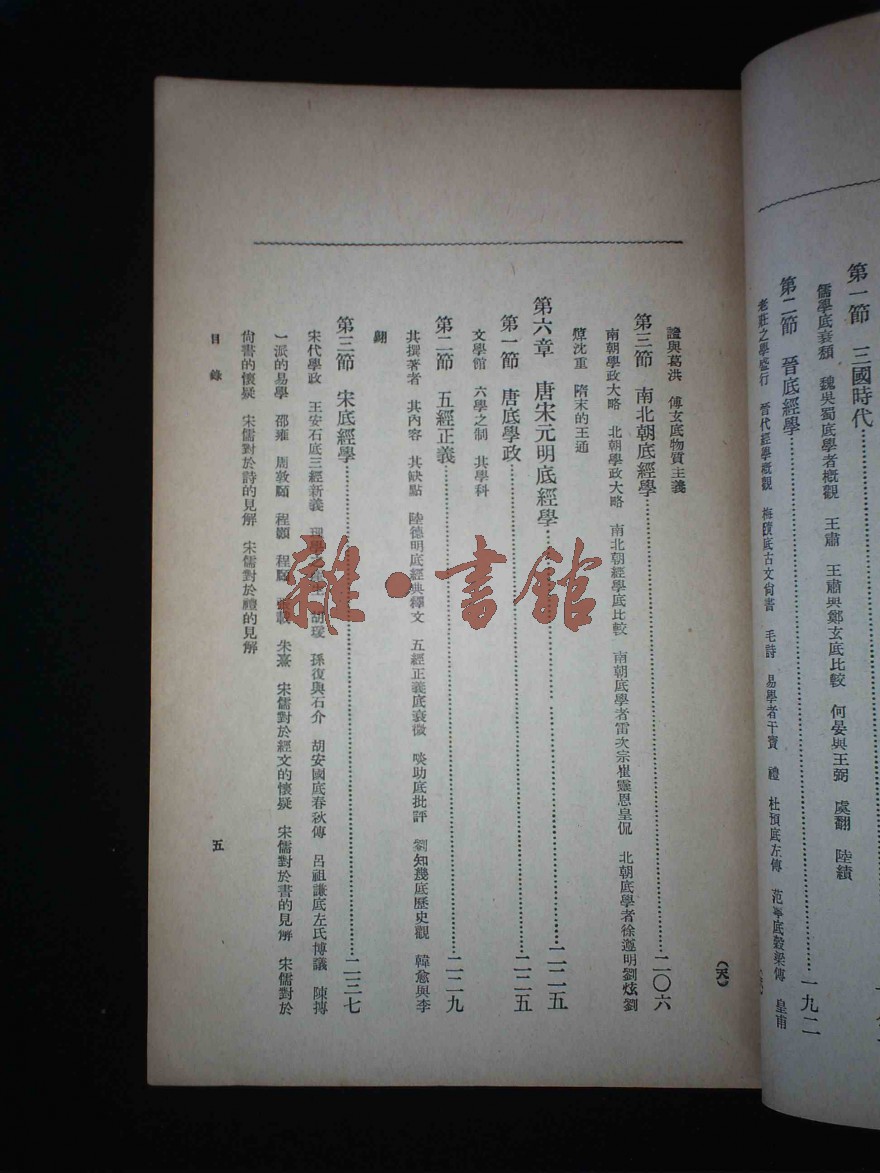 第一節　三國時代
儒學底衰頹　魏吳蜀底學者概觀　王肅　王肅與鄭玄底比較　何晏與王弼　虞翻　陸績
第二節　晉底經學 一九二
老莊之學盛行　晉代經學概觀　梅賾底古文尙書　毛詩　易學者干寶　禮　杜預底左傳　范寧底穀梁傳　皇甫
謐與葛洪　傅玄底物質主義
第三節　南北朝底經學 二〇六
南朝學政大略　北朝學政大略　南北朝經學底比較　南朝底學者雷次宗崔靈恩皇侃　北朝底學者徐遵明劉炫劉
焯沈重　隋末的王通
第六章　唐宋元明底經學 二二五
第一節　唐底學政 二二五
文學館　六學之制　其學科
第二節　五經正義 二二九
其撰著者　其內容　其缺點　陸德明底經典釋文　五經正義底衰微　啖助底批評　劉知幾底歷史觀　韓愈與李
翺
第三節　宋底經學 二三七
宋代學政　王安石底三經新義　理學之　胡瑗　孫復與石介　胡安國底春秋傳　呂祖謙底左氏博議　陳摶
一派的易學　邵雍　周敦頤　程顥　程頤　張載　朱熹　宋儒對於經文的懷疑　宋儒對於書的見解　宋儒對於
尙書的懷疑　宋儒對於詩的見解　宋儒對於禮的見解
目錄
五
雜·書館